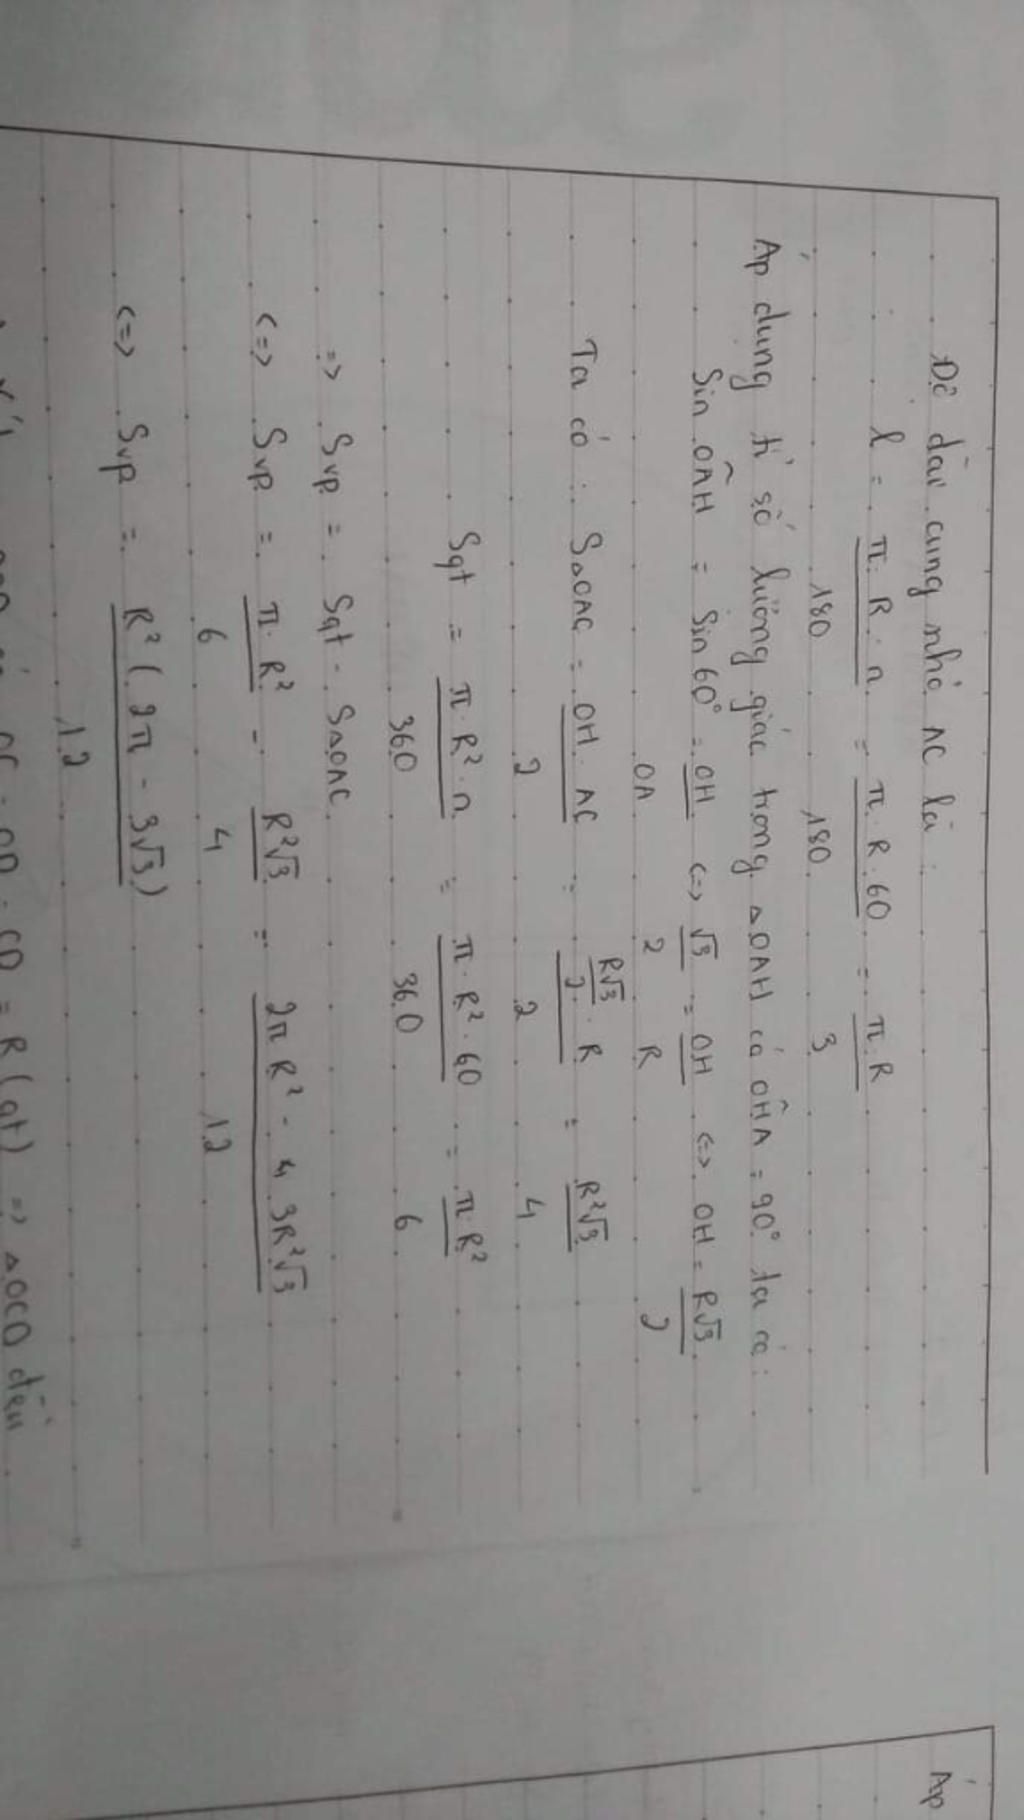 Độ dài cung nhỏ AC là:
l = π.R.n / 180 = π.R.60 / 180 = π.R / 3
Áp dụng tỉ số lượng giác trong ΔOAH có OĤA = 90° ta có:
Sin OÂH = Sin 60° = OH / OA <=> √3 / 2 = OH / R <=> OH = R√3 / 2
Ta có: SΔOAC = OH.AC / 2 = (R√3 / 2 . R) / 2 = R²√3 / 4
Sqt = π.R².n / 360 = π.R².60 / 360 = π.R² / 6
=> Svp = Sqt - SΔOAC
<=> Svp = π.R² / 6 - R²√3 / 4 = 2πR² - 4 3R²√3 / 12
<=> Svp = R²(2π - 3√3) / 12
OC = OD = CD = R (gt) => ΔOCD đều
Áp